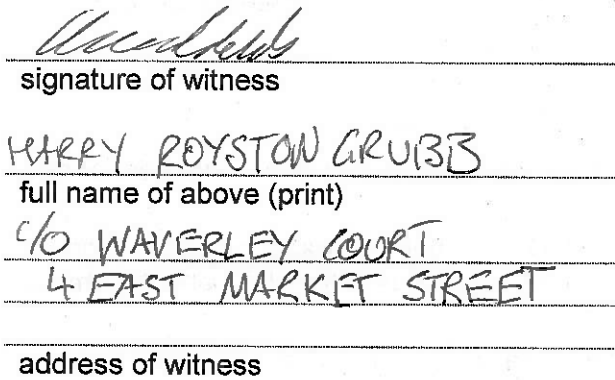 signature of witness
HARRY ROYSTON GRUBB
full name of above (print)
C/O WAVERLEY COURT
4 EAST MARKET STREET
address of witness